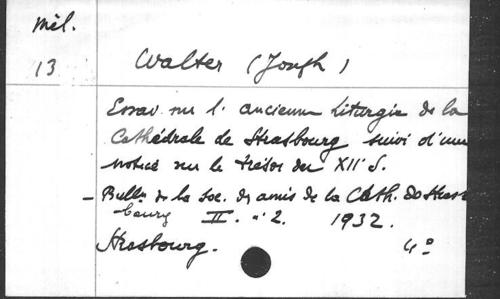 Mél.
13
Walter (Joseph)
Essai sur l'ancienne Liturgie de la
Cathédrale de Strasbourg suivi d'une
notice sur le trésor du XII S.
- Bull. de la Soc. des amis de la Cath. de Stras
bourg II. n° 2. 1932.
Strasbourg. 4°